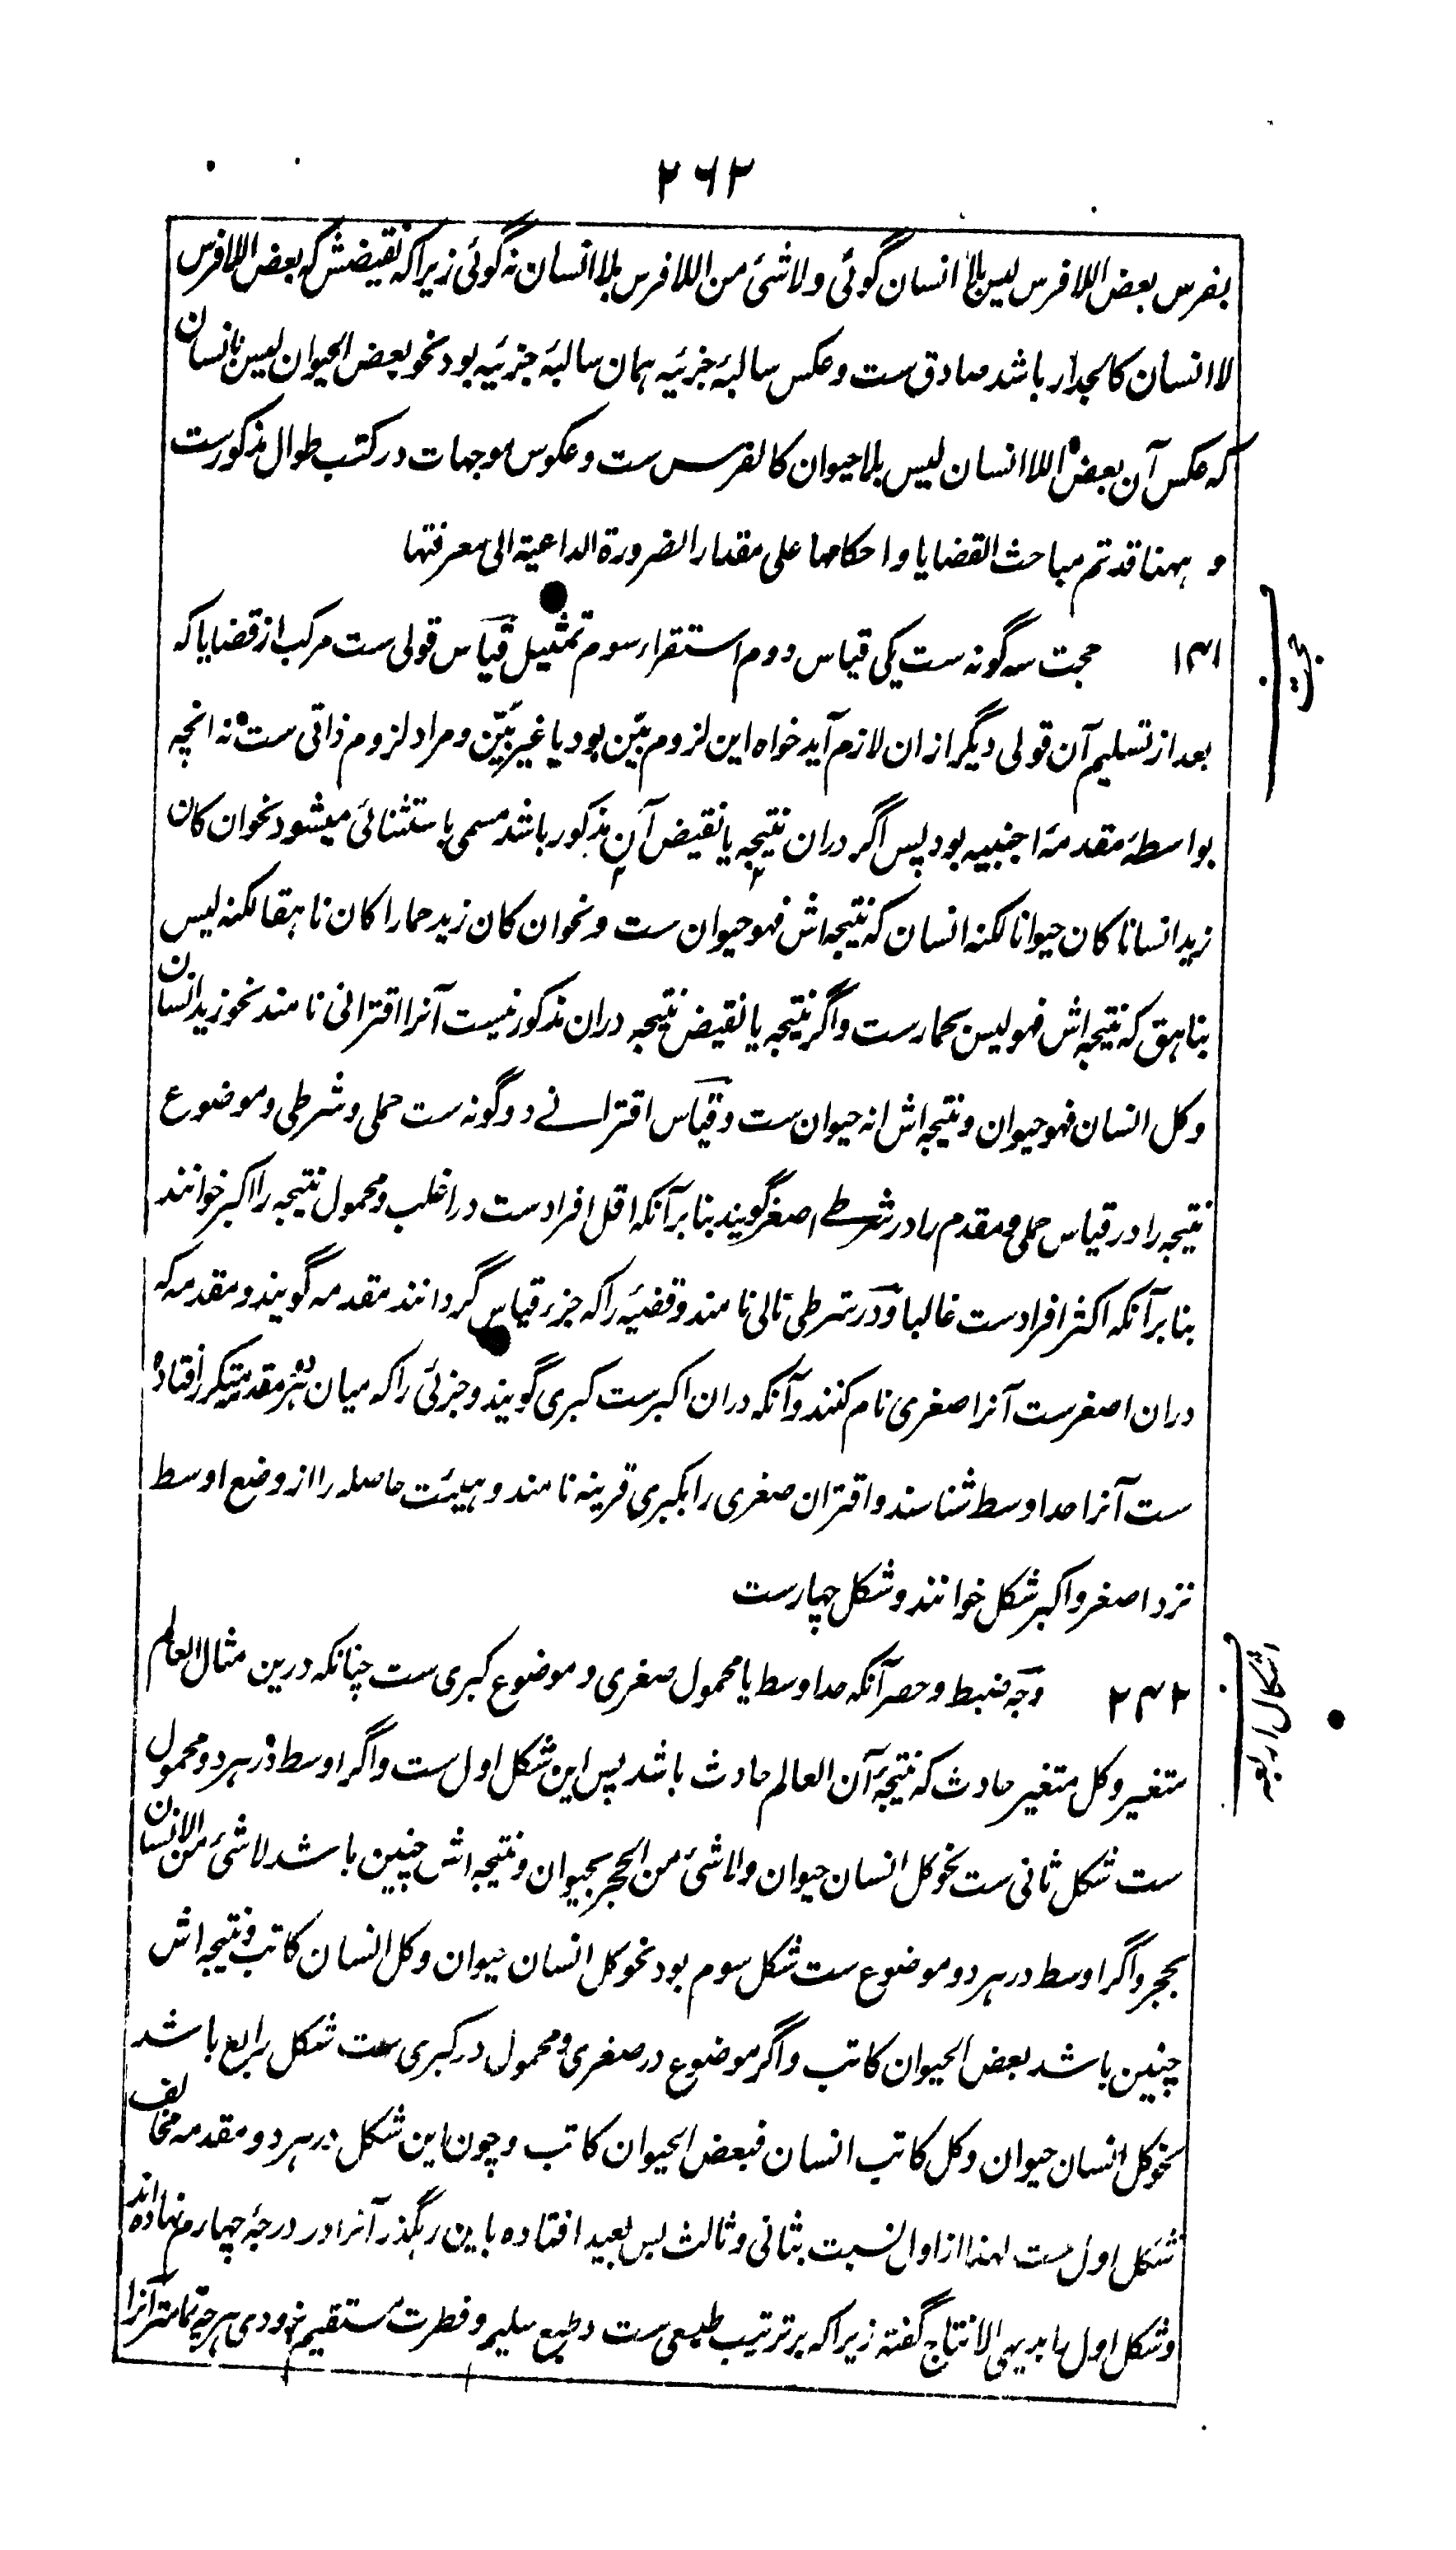 ۲۶۲
بفرس بعض اللافرس لیس بلا انسان گوئی ولاشئ من اللافرس بلا انسان نه گوئی زیراکه نقیضش که بعض اللافرس
لا انسان کالجدار باشد صادق ست و عکس سالبهٔ جزئیه همان سالبهٔ جزئیه بود نحو بعض الحیوان لیس بانسان
که عکس آن بعض اللاانسان لیس بلاحیوان کالفرس ست و عکوس موجهات در کتب طوال مذکورست
و ههنا قد تم مباحث القضایا و احکامها علی مقدار الضرورة الداعیة الی معرفتها
حجت
۱۴۱ حجت سه گونه ست یکی قیاس دوم استقرار سوم تمثیل قیاس قولی ست مرکب از قضایا که
بعد از تسلیم آن قولی دیگر ازان لازم آید خواه این لزوم بیّن بود یا غیر بیّن و مراد لزوم ذاتی ست نه انچه
بواسطهٔ مقدمهٔ اجنبیه بود پس اگر دران نتیجه یا نقیض آن مذکور باشد مسمی باستثنائی میشود نحو ان کان
زید انسانا کان حیوانا لکنه انسان که نتیجه اش فهو حیوان ست و نحو ان کان زید حمارا کان ناهقا لکنه لیس
بناهق که نتیجه اش فهو لیس بحمارست و اگر نتیجه یا نقیض نتیجه دران مذکور نیست آنرا اقترانی نامند نحو زید انسان
و کل انسان فهو حیوان و نتیجه اش انه حیوان ست و قیاس اقترانے دوگونه ست حملی و شرطی و موضوع
نتیجه را در قیاس حملی و مقدم را در شرطے اصغر گویند بنابر آنکه اقل افرادست در اغلب و محمول نتیجه را اکبر خوانند
بنابر آنکه اکثر افرادست غالبا و در شرطی تالی نامند و قضیه را که جزء قیاس گردانند مقدمه گویند و مقدمه که
دران اصغرست آنرا صغری نام کنند و آنکه دران اکبرست کبری گویند و جزئی را که میان هر دو مقدمه متکرر افتاده
ست آنرا حد اوسط شناسند و اقتران صغری را بکبری قرینه نامند و هیئت حاصله را از وضع اوسط
نزد اصغر و اکبر شکل خوانند و شکل چهارست
اشکال اربعه
۲۴۲ وجه ضبط و حصر آنکه حد اوسط یا محمول صغری و موضوع کبری ست چنانکه درین مثال العالم
متغیر و کل متغیر حادث که نتیجهٔ آن العالم حادث باشد پس این شکل اول ست و اگر اوسط در هر دو محمول
ست شکل ثانی ست نحو کل انسان حیوان ولا شئ من الحجر بحیوان و نتیجه اش چنین باشد لا شئ من الانسان
بحجر و اگر اوسط در هر دو موضوع ست شکل سوم بود نحو کل انسان حیوان و کل انسان کاتب و نتیجه اش
چنین باشد بعض الحیوان کاتب و اگر موضوع در صغری و محمول در کبری ست شکل رابع باشد
نحو کل انسان حیوان و کل کاتب انسان فبعض الحیوان کاتب و چون این شکل در هر دو مقدمه مخالف
شکل اول ست لهذا از اول نسبت بثانی و ثالث بس بعید افتاده باین رهگذر آنرا در درجهٔ چهارم نهاده اند
و شکل اول را بدیهی الانتاج گفته زیراکه بر ترتیب طبیعی ست و طبع سلیم و فطرت مستقیم بزودی هرچه تمامتر آنرا